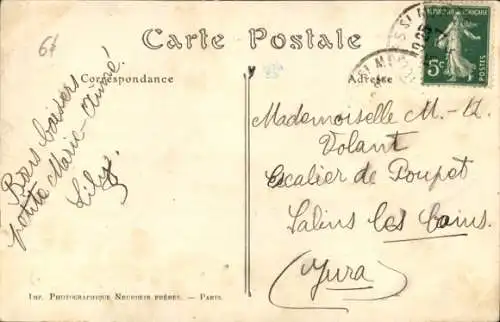 64
Carte Postale
Correspondance
Adresse
Bons baisers
petite Marie-Aimée!
Lily.
Mademoiselle M.-A.
Volant
Escalier de Poupet
Salins les bains
(Jura)
RÉPUBLIQUE FRANÇAISE
5c
POSTES
IMP. PHOTOGRAPHIQUE NEURDEIN FRÈRES. — PARIS.